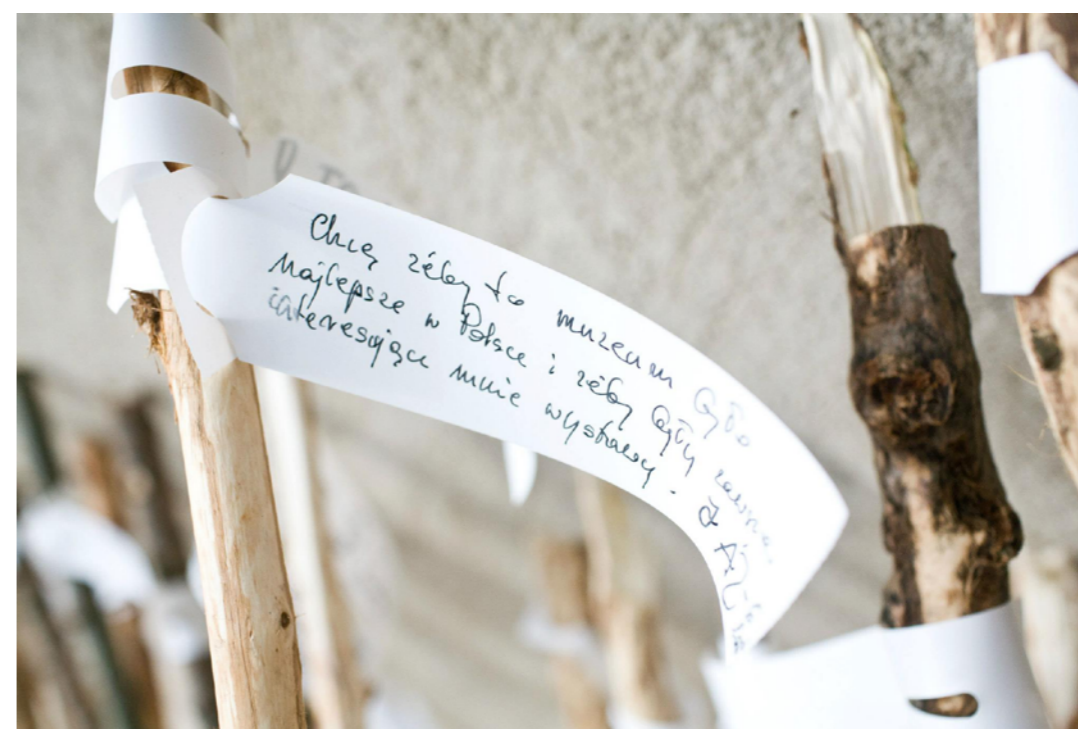 Chcę żeby to muzeum było
najlepsze w Polsce i żeby były zawsze
interesujące mnie wystawy.